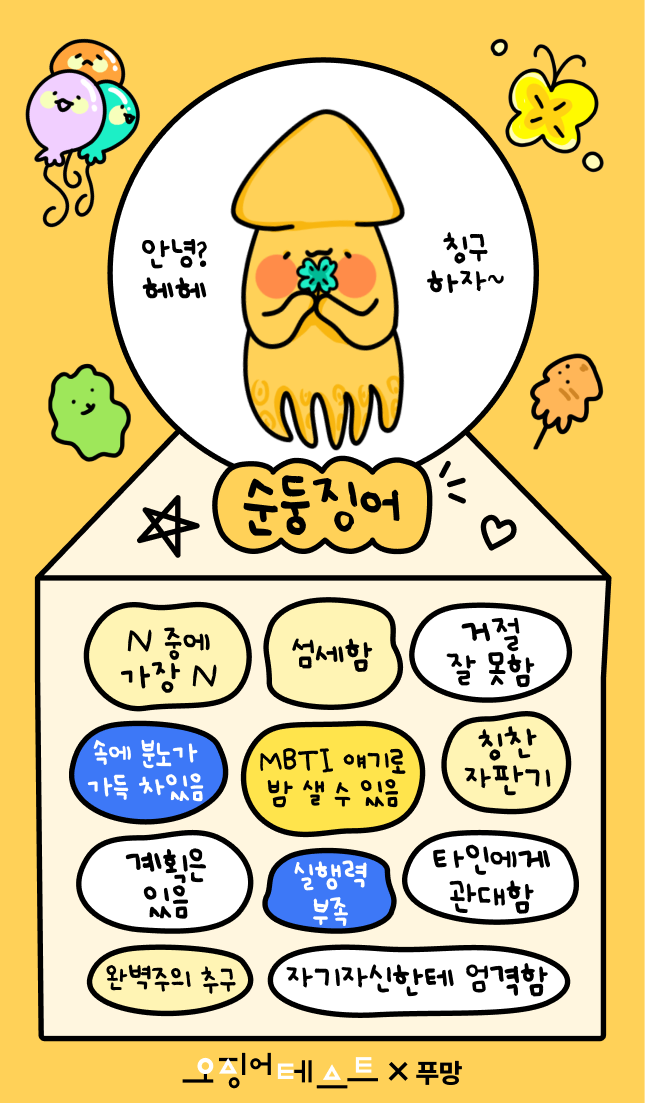 안녕?
헤헤
칭구
하자~
순둥징어
N 중에
가장 N
섬세함
거절
잘 못함
속에 분노가
가득 차있음
MBTI 얘기로
밤 샐 수 있음
칭찬
자판기
계획은
있음
실행력
부족
타인에게
관대함
완벽주의 추구
자기자신한테 엄격함
오징어테스트 × 푸망